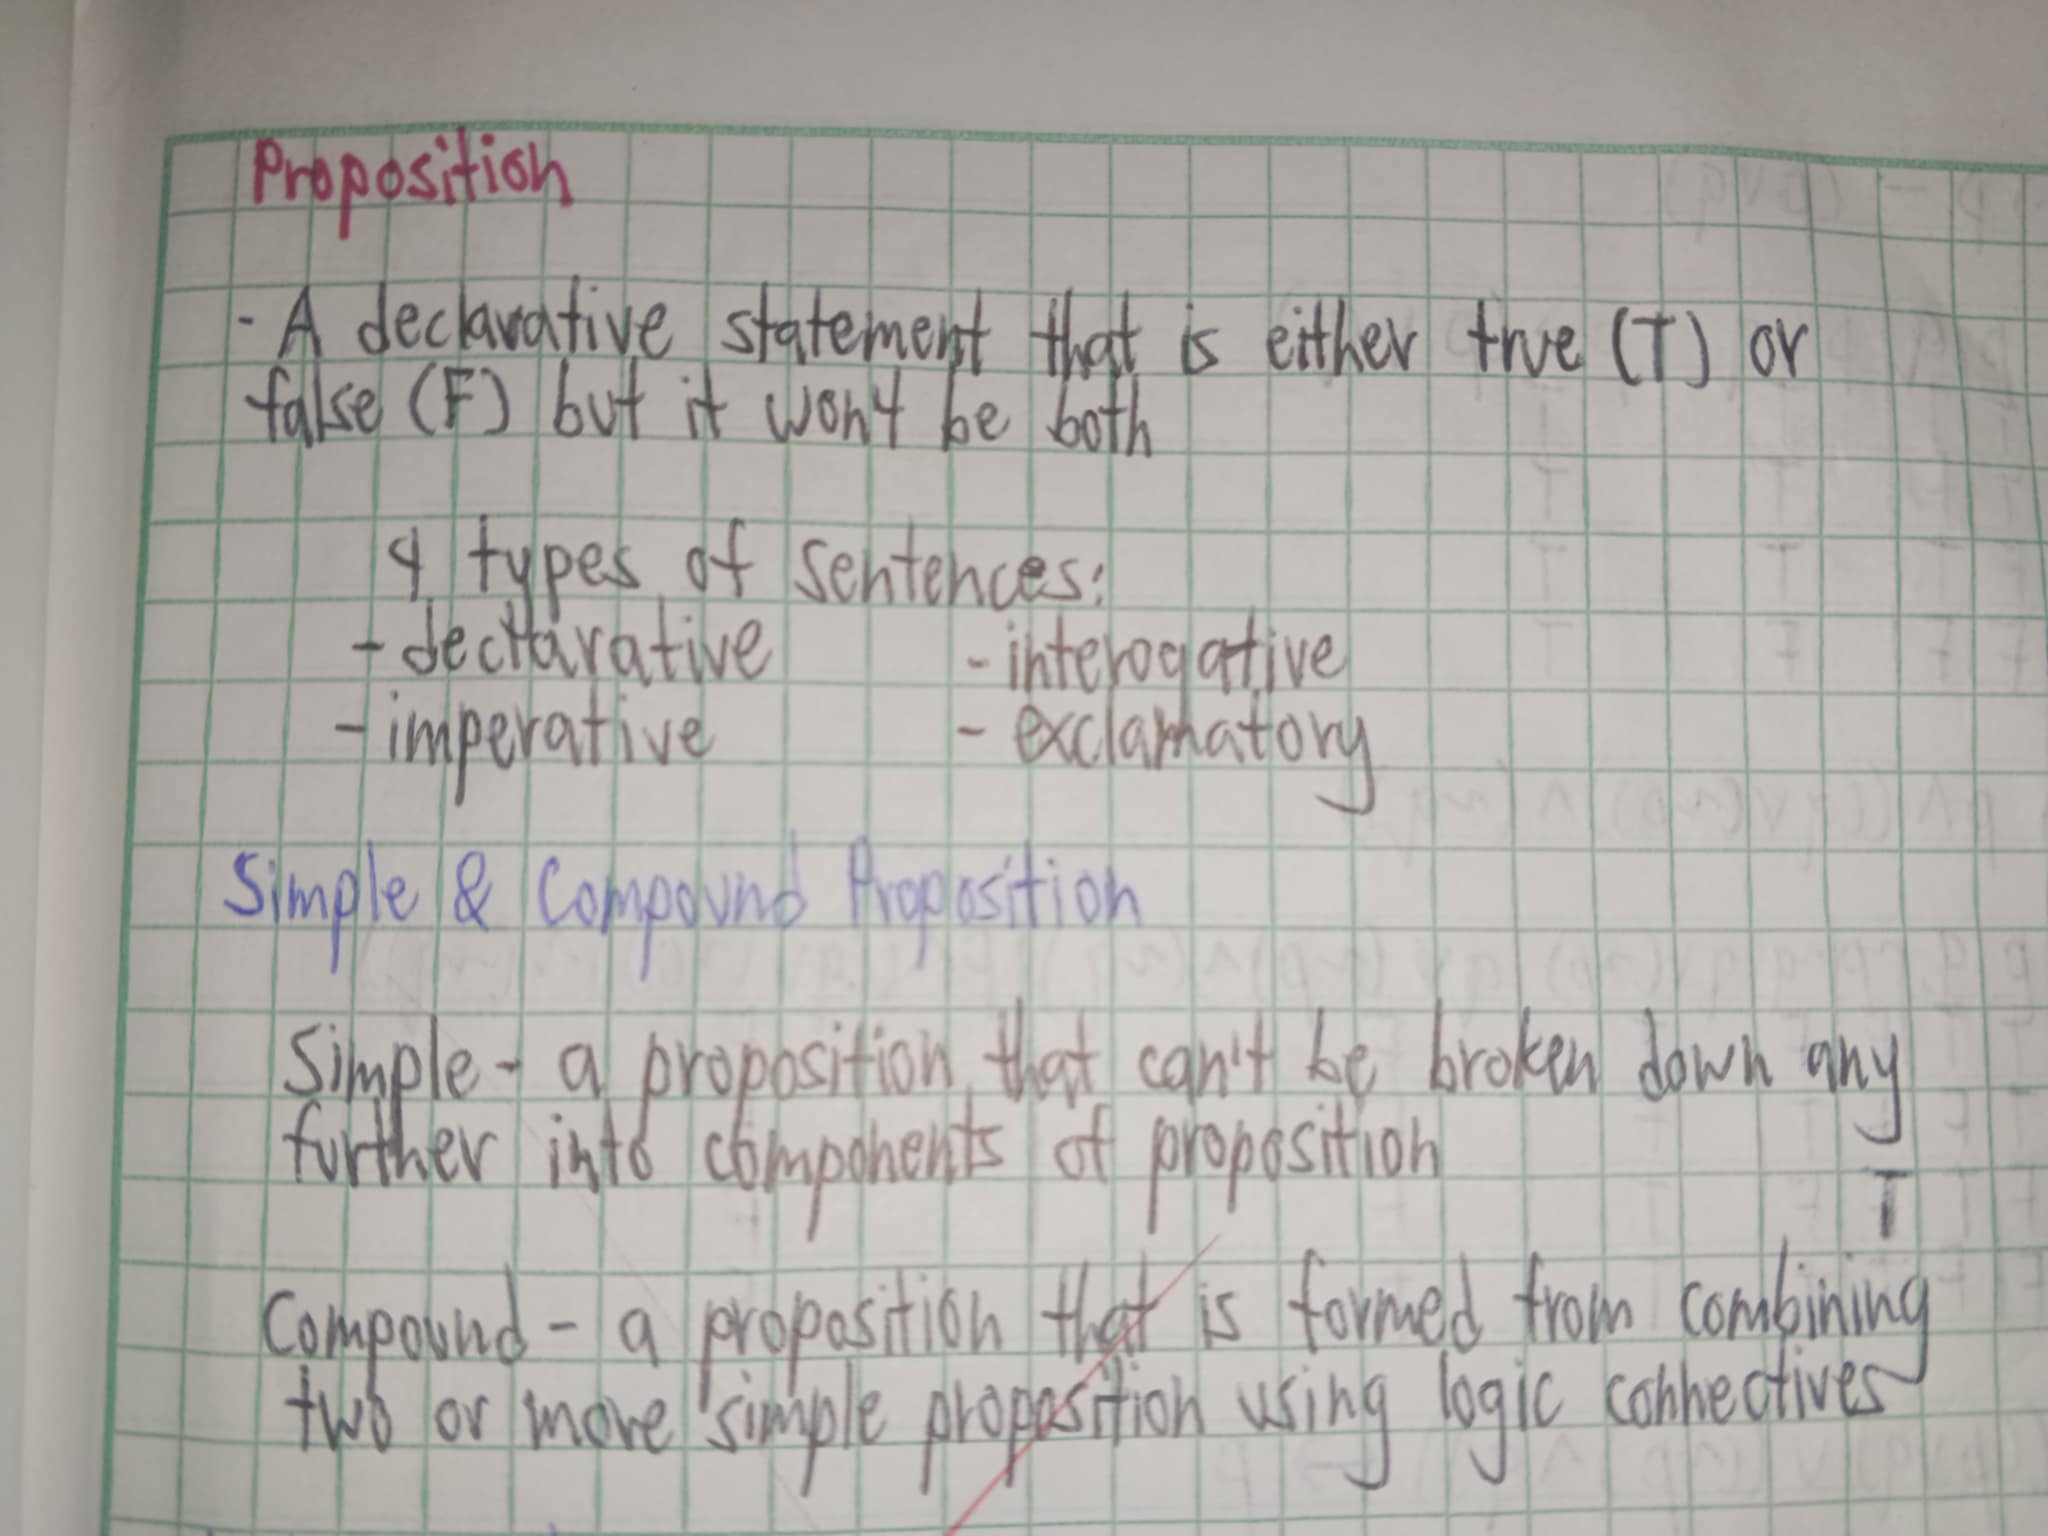 Proposition
- A declarative statement that is either true (T) or
false (F) but it won't be both
4 types of sentences:
- declarative - interogative
- imperative - exclamatory
Simple & Compound Proposition
Simple - a proposition that can't be broken down any
further into components of proposition
T
Compound - a proposition that is formed from combining
two or more simple proposition using logic connectives